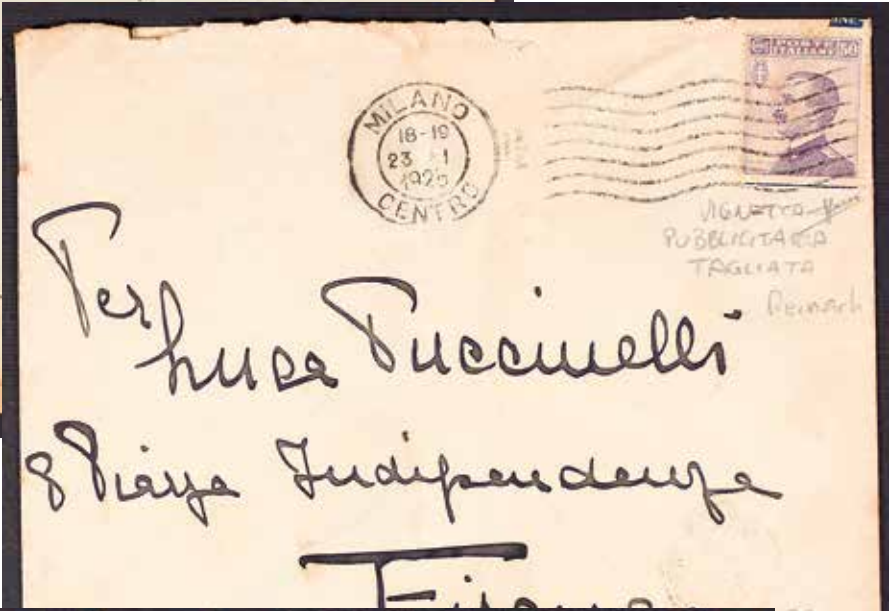 INE
POSTE
ITALIANE
50
MILANO
18-19
23 1
1925
CENTRO
VIGNETTA
PUBBLICITARIA
TAGLIATA
Reinach
Per
Luca Puccinelli
8 Piazza Indipendenza